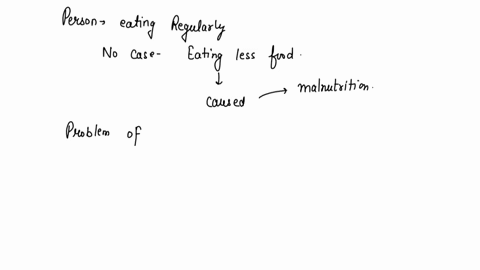 Person → eating Regularly
No case- Eating less food.
↓
caused → malnutrition.
Problem of